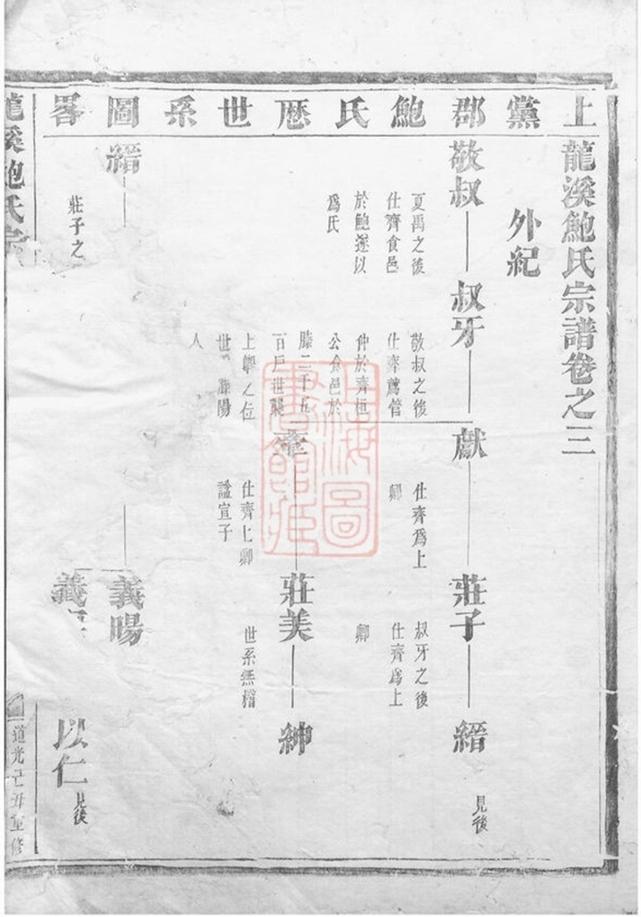 上黨郡鮑氏歷世系圖畧
龍溪鮑氏宗譜卷之三
外紀
敬叔
夏禹之後
仕齊食邑
於鮑遂以
爲氏
叔牙
敬叔之後
仕齊薦管
仲於齊桓
公食邑於
滕二十五
百戶世襲
上卿之位
世 滕陽
人
獻
仕齊爲上
卿
莊子
叔牙之後
仕齊爲上
卿
縉
見後
牽
仕齊上卿
謚宣子
莊美
世系無稽
紳
縉
莊子之
義陽
義
以仁
見後
龍溪鮑氏宗
道光己丑重修
上海圖書館藏